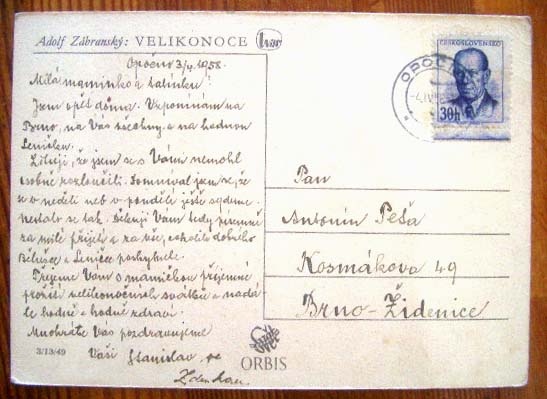 Adolf Zábranský: VELIKONOCE
Opočno 3/4. 1958.
Milá maminko a tatínku!
Jsme opět doma. Vzpomínám na
Brno, na Vás všechny a na hodnou
Leničku.
Lituji, že jsem se s Vámi nemohl
osobně rozloučiti. Domníval jsem se, že
se v neděli neb v pondělí ještě sejdeme.
Nestalo se tak. Děkuji Vám tedy písemně
za milé přijetí a za vše, cokoliv dobrého
Lenince poskytnete.
Přejeme Vám s maminkou příjemné
prožití velikonočních svátků a nadá-
le hodně a hodně zdraví.
Mnohráte Vás pozdravujeme
Vaši Stanislav se
Zdenkou.
3/13/49
ORBIS
ČESKOSLOVENSKO
30h
OPOČNO
Pan
Antonín Peša
Kosmákova 49
Brno-Židenice